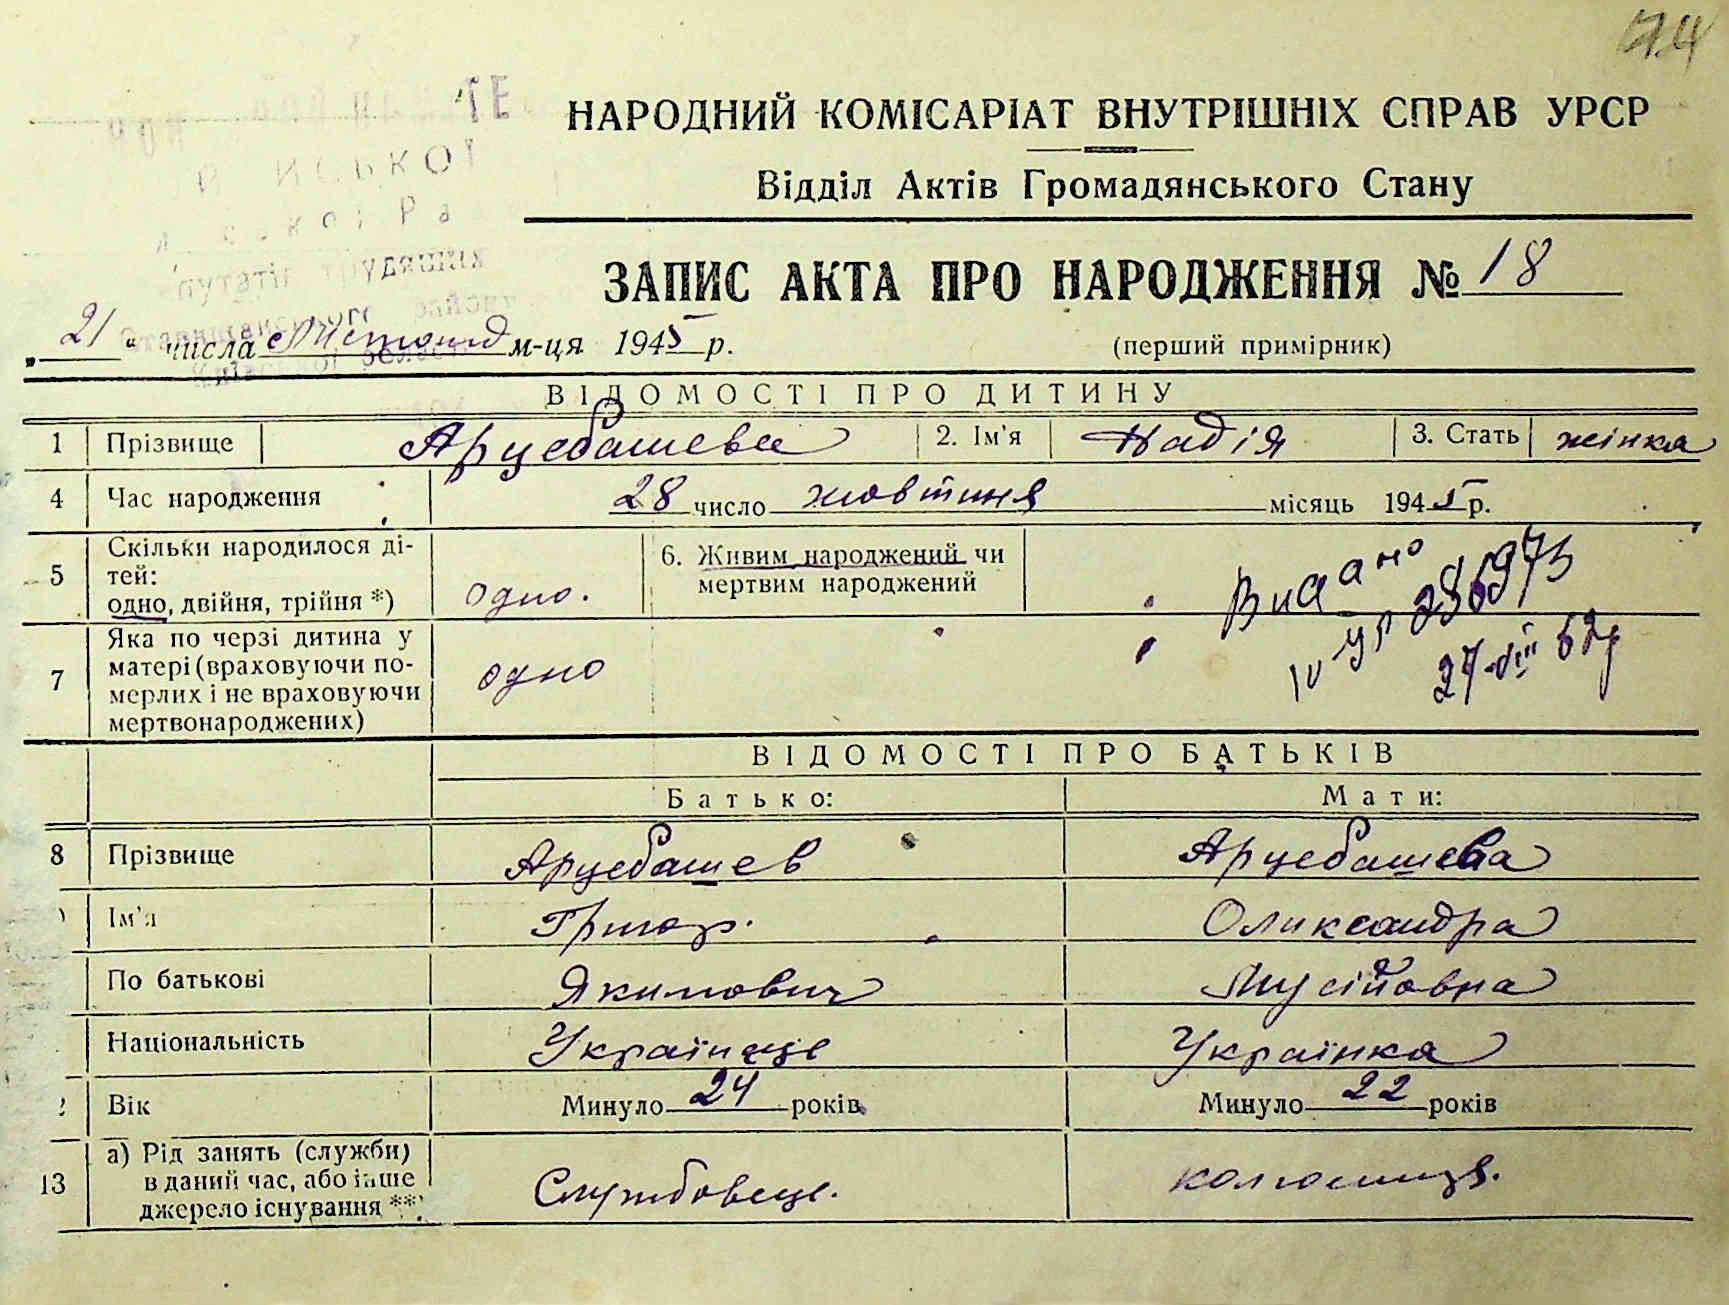 НАРОДНИЙ КОМІСАРІАТ ВНУТРІШНІХ СПРАВ УРСР
Відділ Актів Громадянського Стану
ЗАПИС АКТА ПРО НАРОДЖЕННЯ № 18
„ 21 “ числа Листопад м-ця 1945 р. (перший примірник)
ВІДОМОСТІ ПРО ДИТИНУ
1 Прізвище Арцебашева 2. Ім'я Надія 3. Стать жінка
4 Час народження 28 число жовтиня місяць 1945 р.
5 Скільки народилося ді-
тей:
одно, двійня, трійня *) одно.
6. Живим народжений чи
мертвим народжений
Видано
IV УР 286973
27-VIII 62р
7 Яка по черзі дитина у
матері (враховуючи по-
мерлих і не враховуючи
мертвонароджених) одно
ВІДОМОСТІ ПРО БАТЬКІВ
Батько: Мати:
8 Прізвище Арцебашев Арцебашева
Ім'я Григор. Олександра
По батькові Якимович Мусійовна
Національність Українець Українка
Вік Минуло 24 років Минуло 22 років
13 а) Рід занять (служби)
в даний час, або інше
джерело існування **) Службовець. колгосниця.